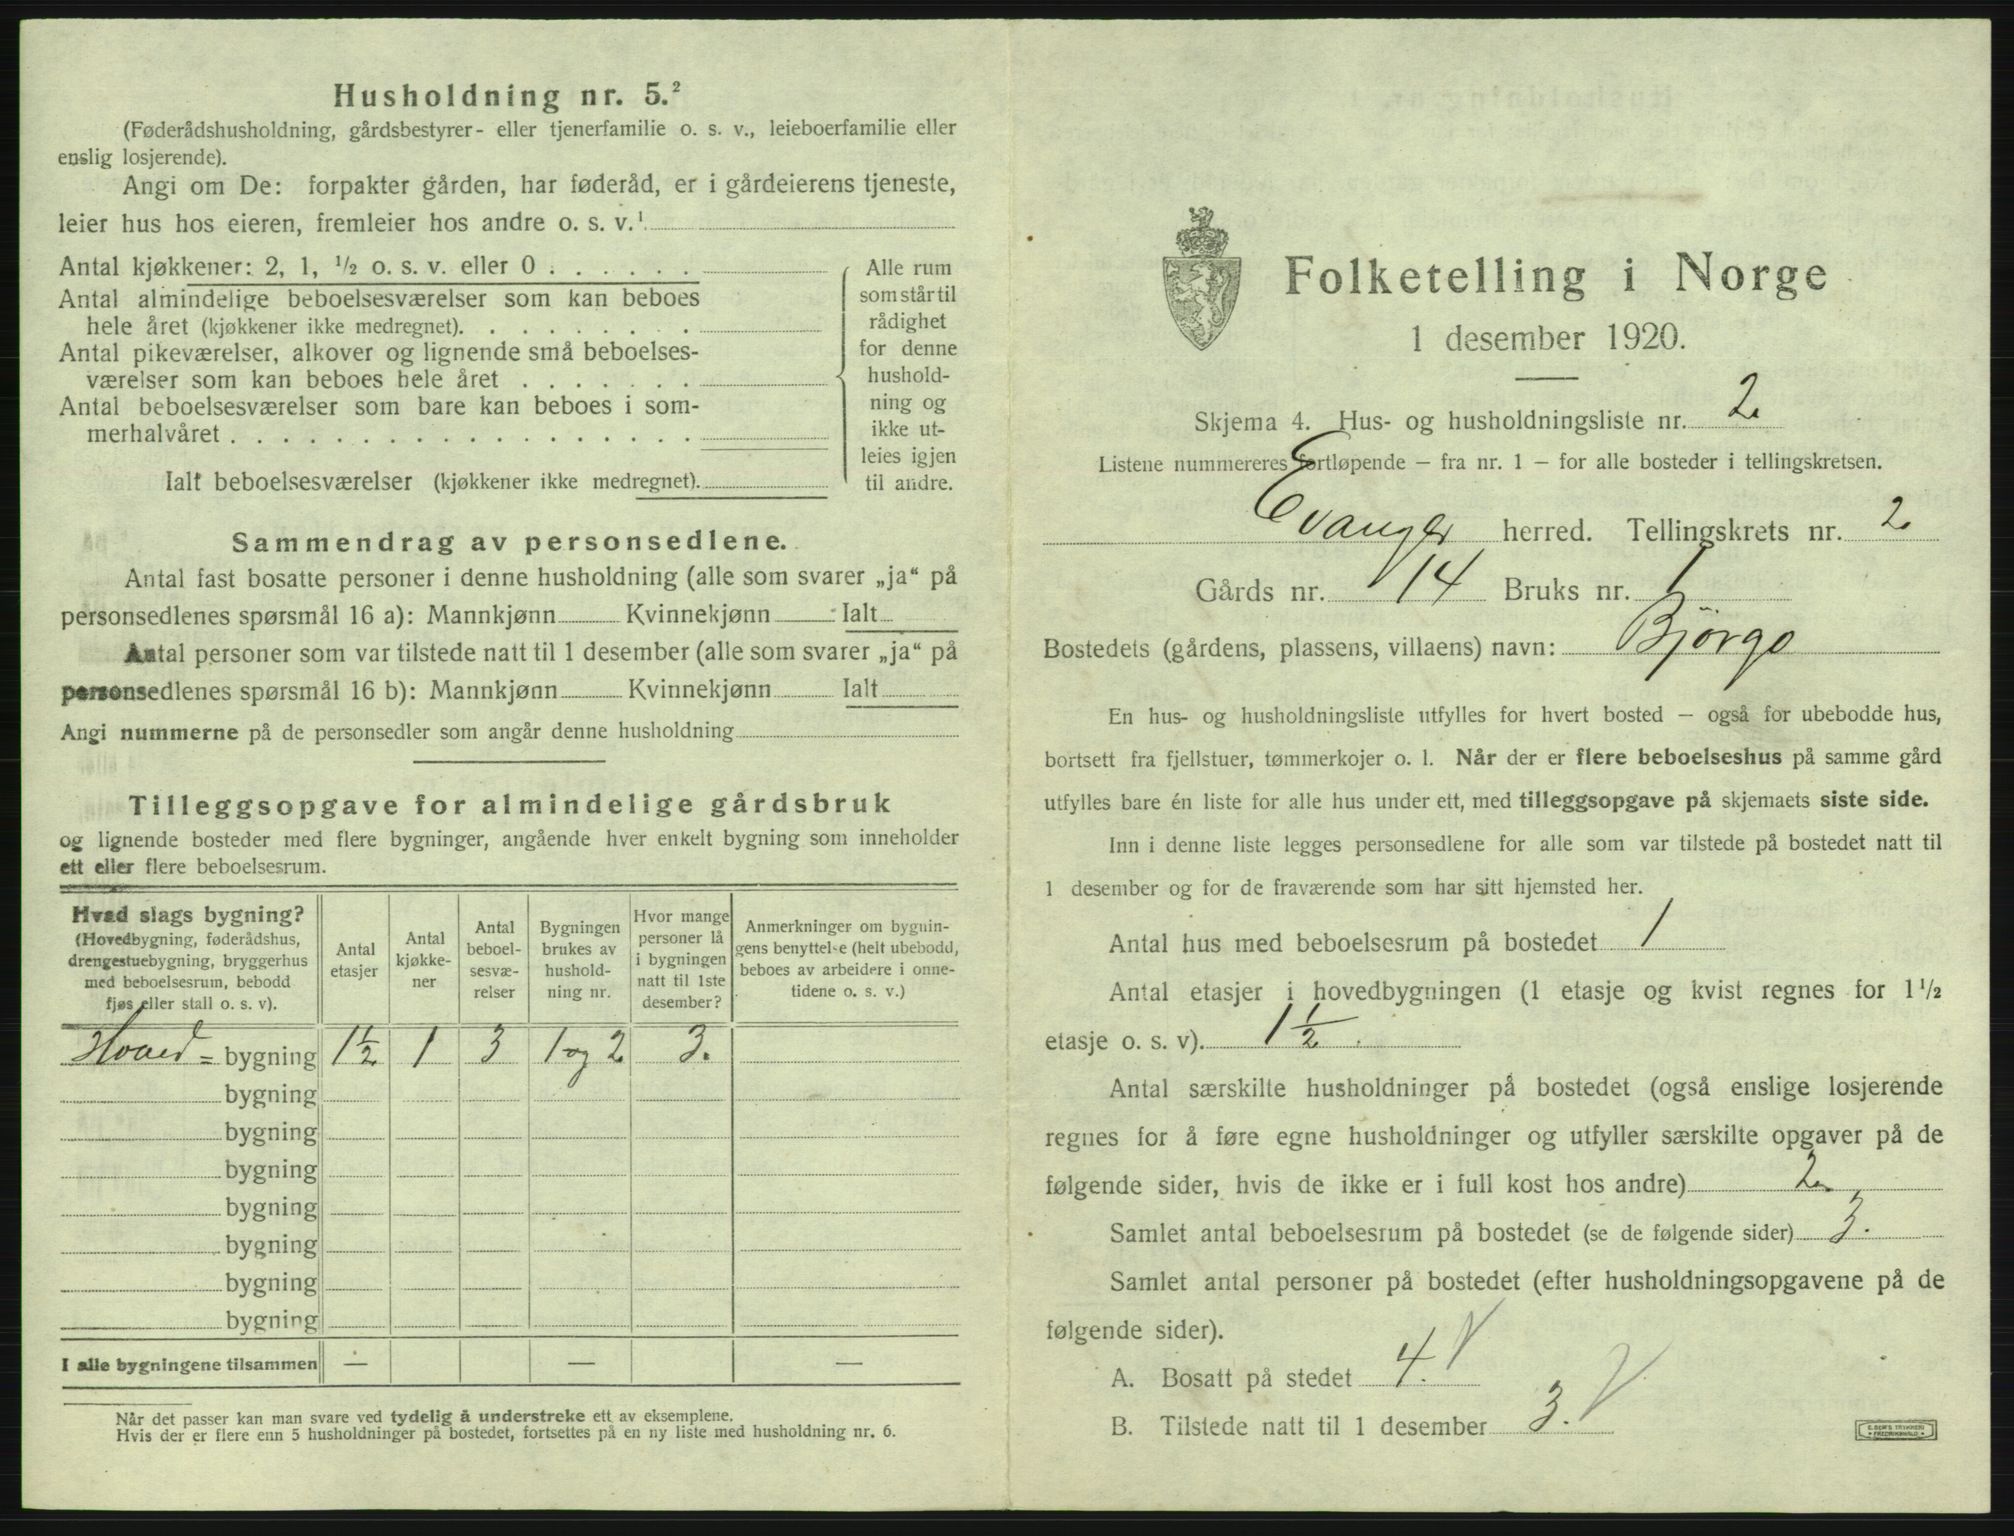 Husholdning nr. 5.²
(Føderådshusholdning, gårdsbestyrer- eller tjenerfamilie o. s. v., leieboerfamilie eller
enslig losjerende).
Angi om De: forpakter gården, har føderåd, er i gårdeierens tjeneste,
leier hus hos eieren, fremleier hos andre o. s. v.¹
Antal kjøkkener: 2, 1, ½ o. s. v. eller 0 . . . . . .
Antal almindelige beboelsesværelser som kan beboes
hele året (kjøkkener ikke medregnet). . . . . . . . .
Antal pikeværelser, alkover og lignende små beboelses-
værelser som kan beboes hele året . . . . . . .
Antal beboelsesværelser som bare kan beboes i som-
merhalvåret . . . . . . . . . . . . . . . . . .
Ialt beboelsesværelser (kjøkkener ikke medregnet).
Alle rum
som står til
rådighet
for denne
hushold-
ning og
ikke ut-
leies igjen
til andre.
Sammendrag av personsedlene.
Antal fast bosatte personer i denne husholdning (alle som svarer „ja“ på
personsedlenes spørsmål 16 a): Mannkjønn Kvinnekjønn Ialt
Antal personer som var tilstede natt til 1 desember (alle som svarer „ja“ på
personsedlenes spørsmål 16 b): Mannkjønn Kvinnekjønn Ialt
Angi nummerne på de personsedler som angår denne husholdning
Tilleggsopgave for almindelige gårdsbruk
og lignende bosteder med flere bygninger, angående hver enkelt bygning som inneholder
ett eller flere beboelsesrum.
Hvad slags bygning?
(Hovedbygning, føderådshus,
drengestuebygning, bryggerhus
med beboelsesrum, bebodd
fjøs eller stall o. s. v).
Antal
etasjer
Antal
kjøkke-
ner
Antal
beboel-
sesvæ-
relser
Bygningen
brukes av
hushold-
ning nr.
Hvor mange
personer lå
i bygningen
natt til 1ste
desember?
Anmerkninger om bygnin-
gens benyttelse (helt ubebodd,
beboes av arbeidere i onne-
tidene o. s. v.)
Hoved= bygning 1½ 1 3 1 og 2 3.
bygning
bygning
bygning
bygning
bygning
bygning
bygning
I alle bygningene tilsammen — — —
Når det passer kan man svare ved tydelig å understreke ett av eksemplene.
Hvis der er flere enn 5 husholdninger på bostedet, fortsettes på en ny liste med husholdning nr. 6.
Folketelling i Norge
1 desember 1920.
Skjema 4. Hus- og husholdningsliste nr. 2.
Listene nummereres fortløpende — fra nr. 1 — for alle bosteder i tellingskretsen.
Evanger herred. Tellingskrets nr. 2.
Gårds nr. 14 Bruks nr. 1
Bostedets (gårdens, plassens, villaens) navn: Bjørgo
En hus- og husholdningsliste utfylles for hvert bosted — også for ubebodde hus,
bortsett fra fjellstuer, tømmerkojer o. l. Når der er flere beboelseshus på samme gård
utfylles bare én liste for alle hus under ett, med tilleggsopgave på skjemaets siste side.
Inn i denne liste legges personsedlene for alle som var tilstede på bostedet natt til
1 desember og for de fraværende som har sitt hjemsted her.
Antal hus med beboelsesrum på bostedet 1
Antal etasjer i hovedbygningen (1 etasje og kvist regnes for 1½
etasje o. s. v). 1½.
Antal særskilte husholdninger på bostedet (også enslige losjerende
regnes for å føre egne husholdninger og utfyller særskilte opgaver på de
følgende sider, hvis de ikke er i full kost hos andre) 2.
Samlet antal beboelsesrum på bostedet (se de følgende sider) 3.
Samlet antal personer på bostedet (efter husholdningsopgavene på de
følgende sider).
A. Bosatt på stedet 4.
B. Tilstede natt til 1 desember 3.